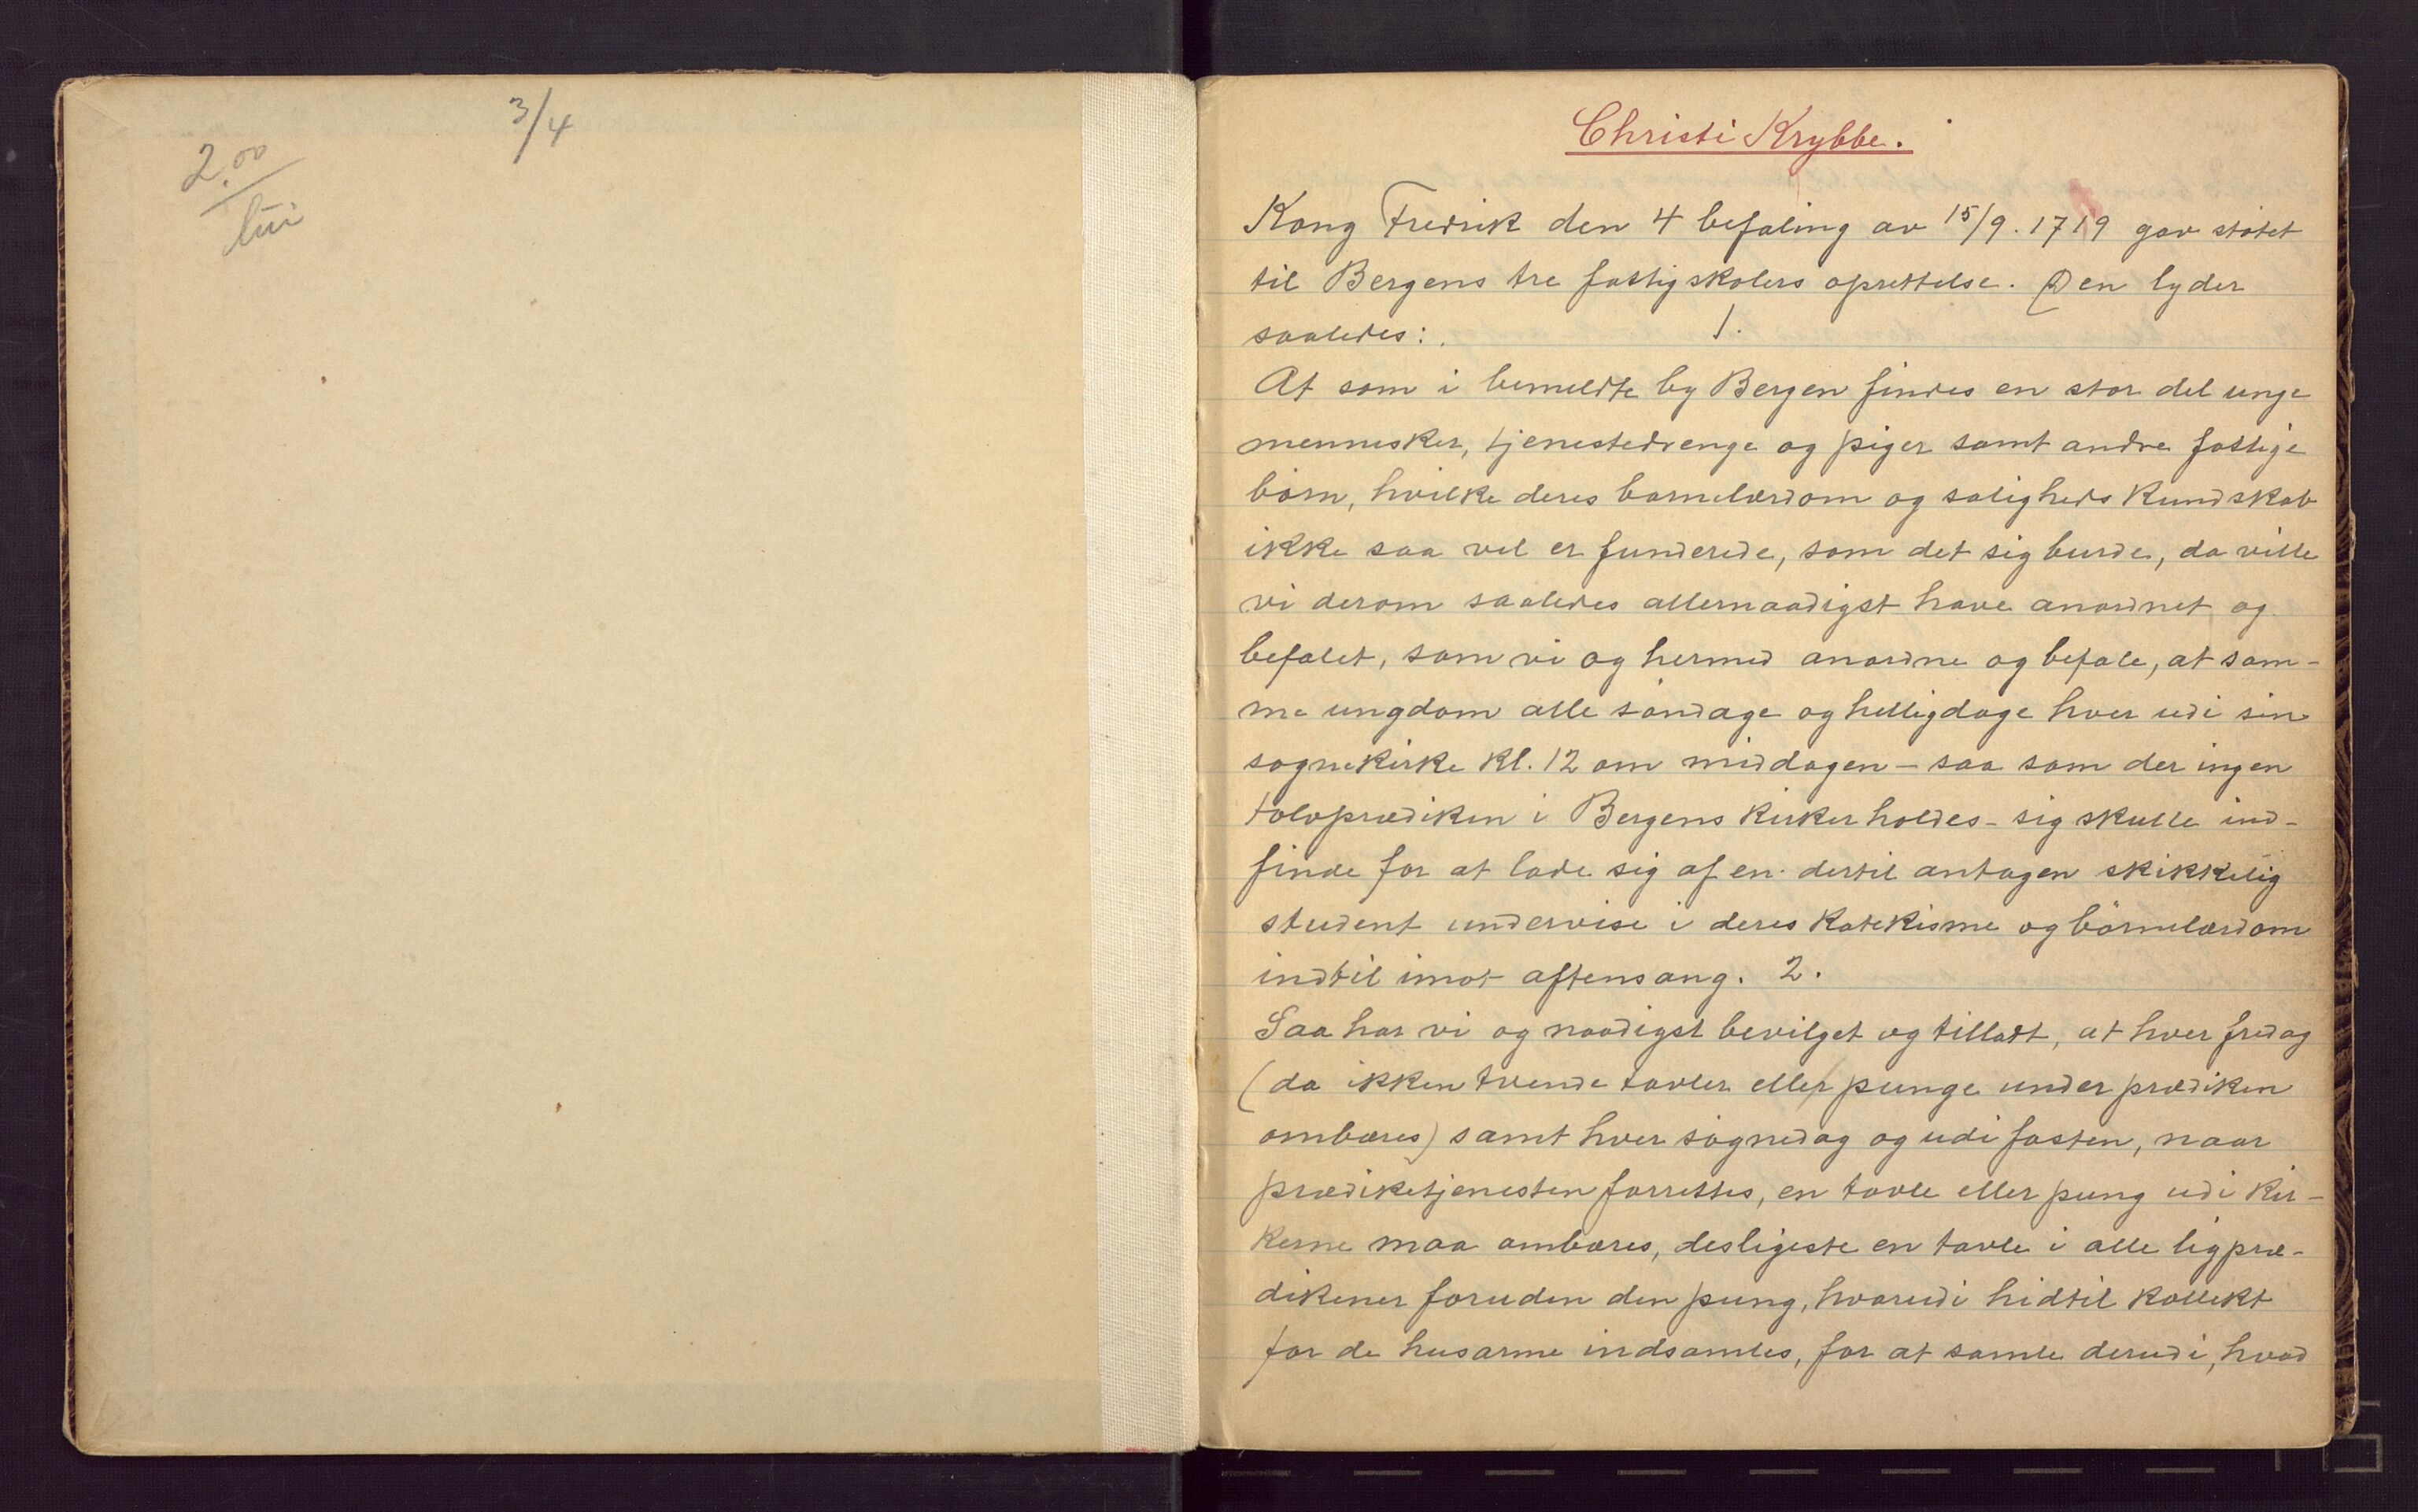 3/4
2.00
Christi Krybbe.
Kong Fredrik den 4 befaling av 15/9. 1719 gav støtet
til Bergens tre fattigskolers oprettelse. Den lyder
saaledes: 1.
At som i bemeldte by Bergen findes en stor del unge
mennesker, tjenestedrenge og piger samt andre fattige
børn, hvilke deres barnelærdom og saligheds kundskab
ikke saa vel er funderede, som det sig burde, da ville
vi derom saaledes allernaadigst have anordnet og
befalet, som vi og hermed anordne og befale, at sam-
me ungdom alle søndage og helligdage hver udi sin
sognekirke kl. 12 om middagen - saa som der ingen
tolvprædiken i Bergens kirker holdes - sig skulle ind-
finde for at lade sig af en dertil antagen skikkelig
student undervise i deres katekisme og børnelærdom
indtil imot aftensang. 2.
Saa har vi og naadigst bevilget og tilladt, at hver fredag
(da ikkun tvende tavler eller punge under prædiken
ombæres) samt hver søgnedag og udi fasten, naar
prædiketjenesten forrettes, en tavle eller pung udi kir-
kerne maa ombæres, desligeste en tavle i alle ligpræ-
dikener foruden den pung, hvorudi hidtil kollekt
for de husarme indsamles, for at samle derudi, hvad